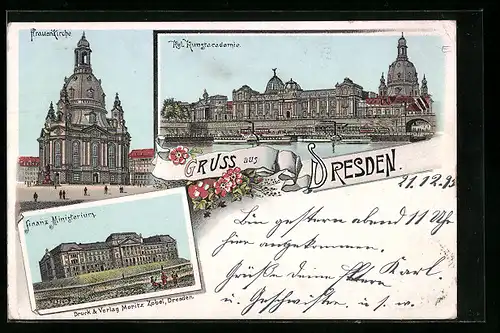 Frauenkirche
Kgl. Kunstacademie.
GRUSS aus
DRESDEN.
21.12.95
Finanz Ministerium
Druck & Verlag Moritz Zobel, Dresden.
Bin gestern abend 11 Uhr
hier angekommen.
Grüße deine Karl.
u. Geschwister u. s. w.